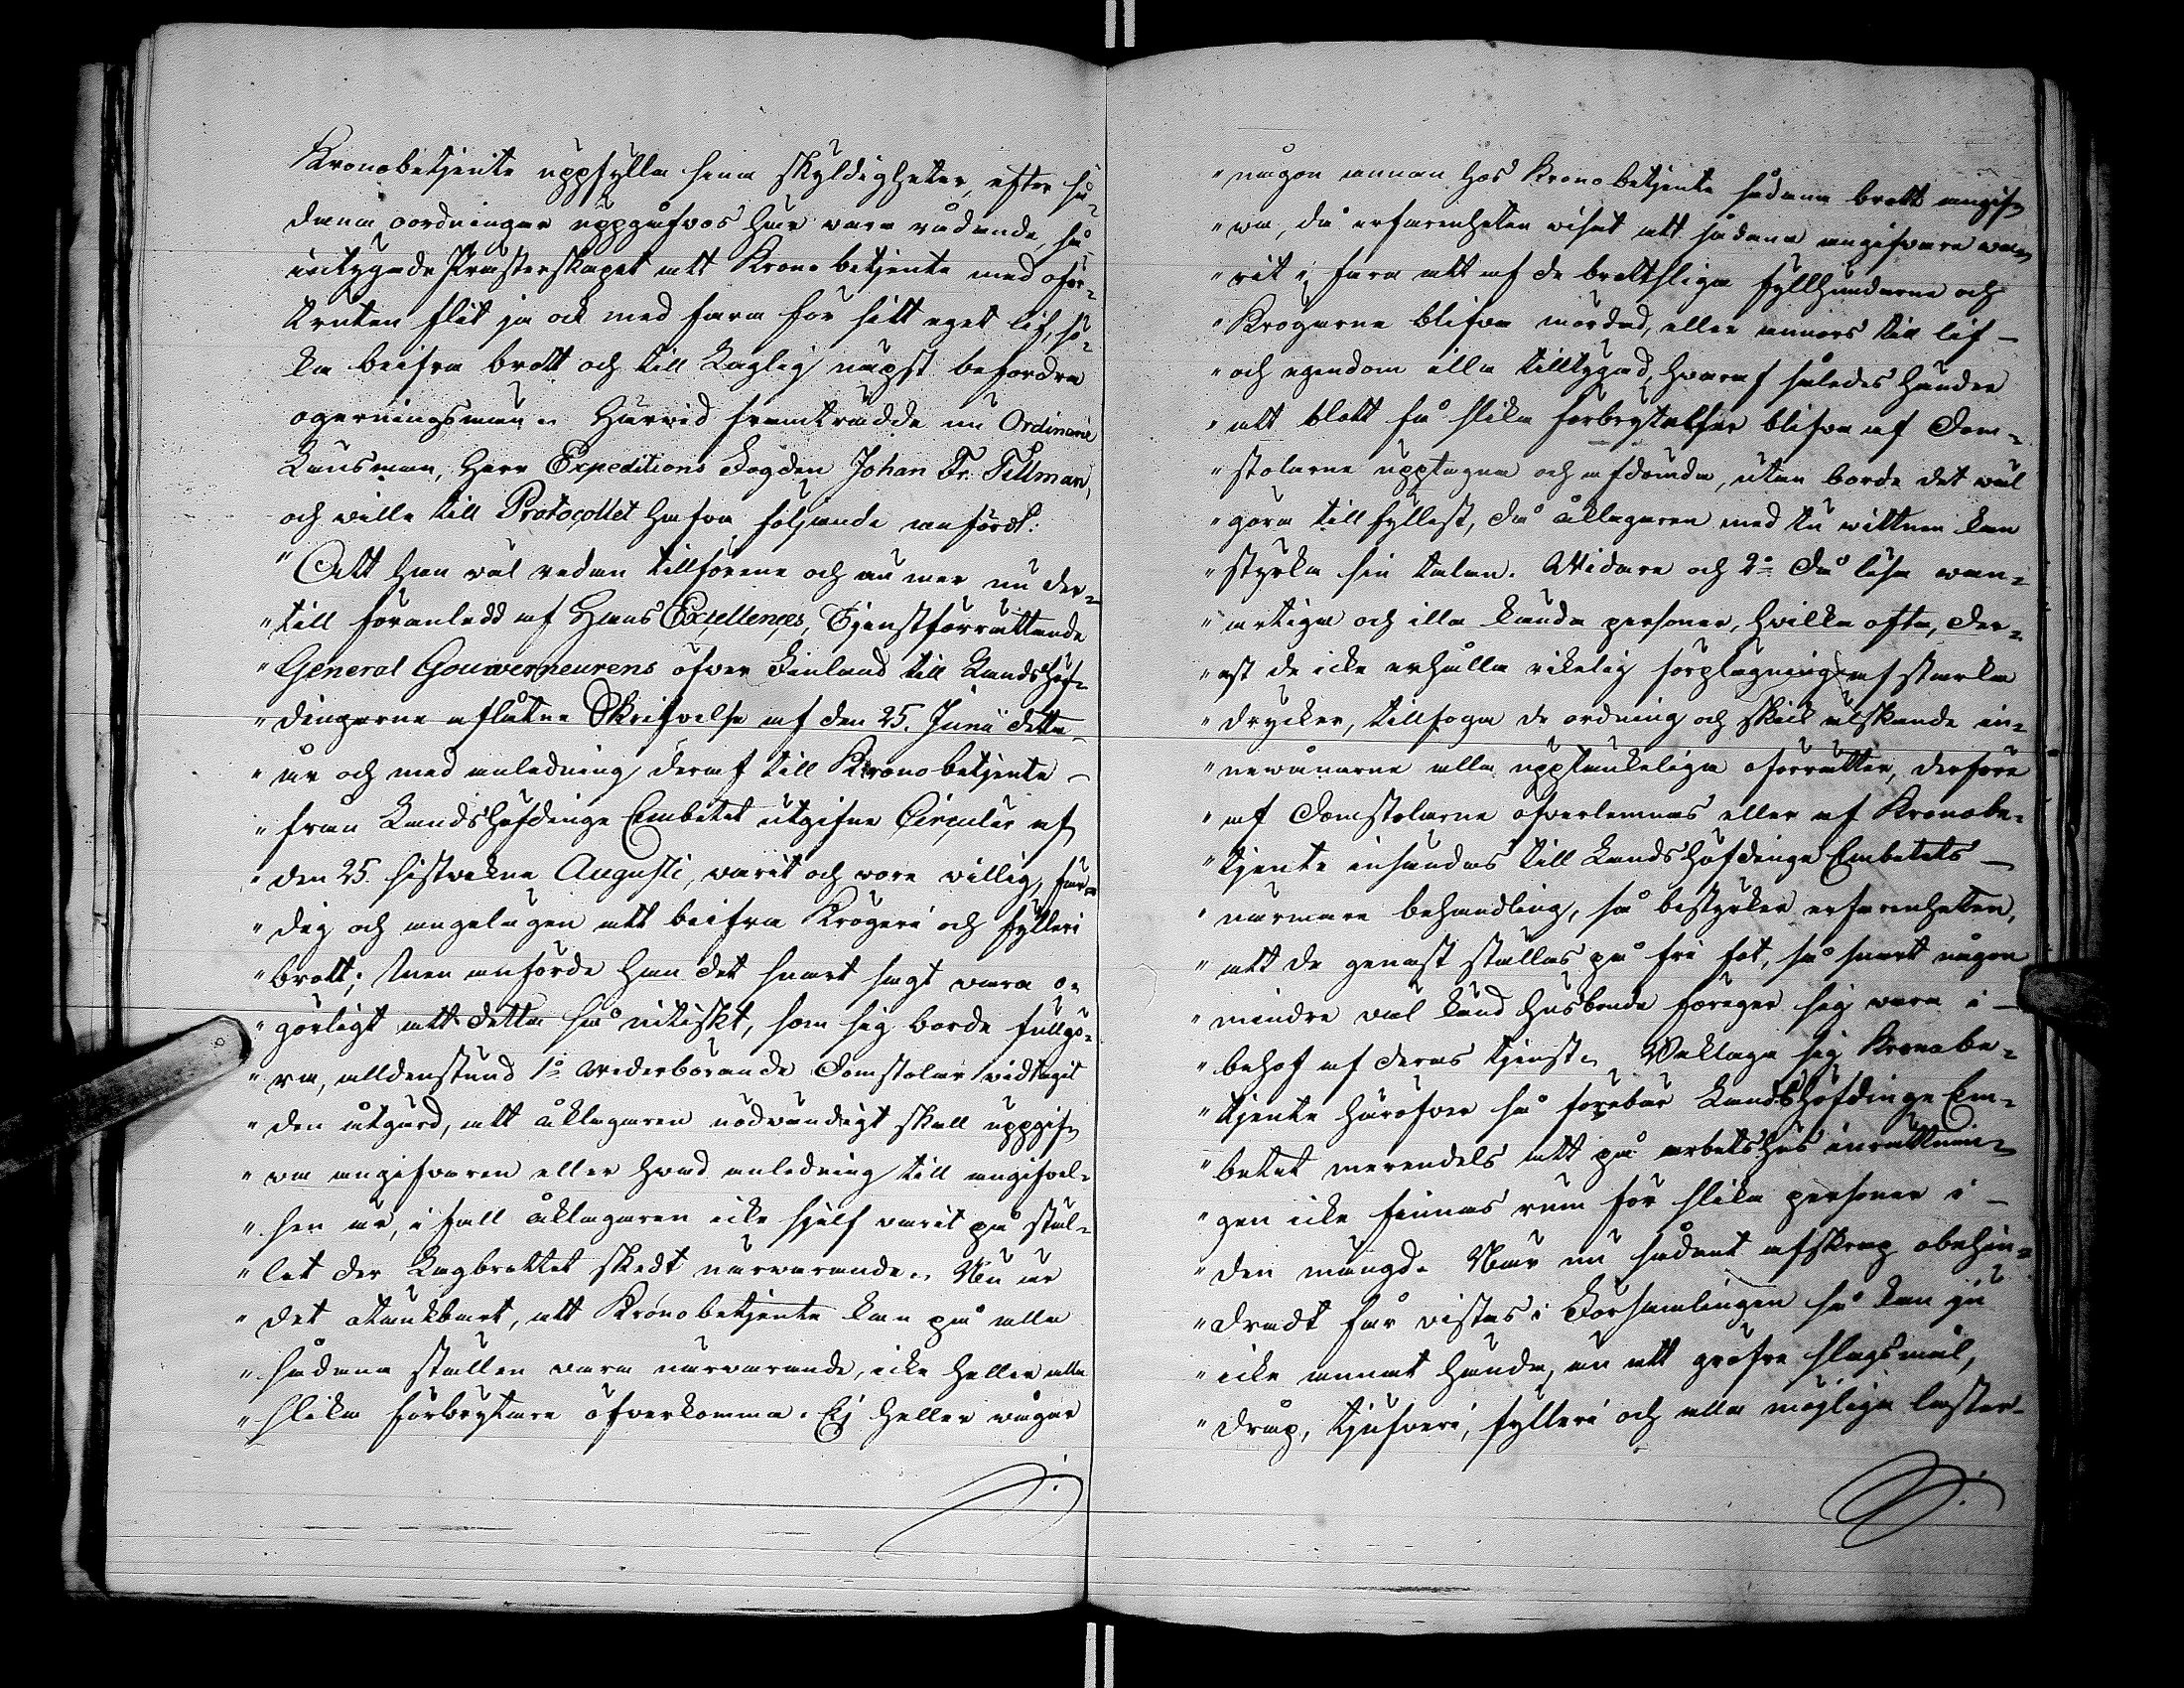 Kronobetjente uppfylla sina skyldigheter, efter så-
dana oordningar uppgåfvos här vara rådande, så
intygade Prästerskapet att Kronobetjente med oför-
truten flit ja ock med fara för sitt eget lif, sö-
ka beifra brott och till Laglig näpst befordra
ogerningsmän. Härvid framträdde nu Ordinarie
Länsman, Herr Expeditions Fogden Johan Fr. Tillman,
och wille till Protocollet hafva följande anfördt:
"Att han väl redan tillförene och än mer nu der-
"till föranledd af Hans Excellences, Tjenstförrättande
"General Gouverneurens öfver Finland till Landshöf-
"dingarne aflåtne Skrifvelse af den 25. Junii detta
"år och med anledning deraf till Kronobetjente -
"från Landshöfdinge Embetet utgifne Circulär af
"den 25. sistvekne Augusti, varit och vore villig, fär-
"dig och angelägen att beifra Krögeri och fylleri
"brott; Men anförde han det snart sagt vara o-
"görligt att detta så nitiskt, som sig borde fullgö-
"ra, alldenstund 1o vederbörande Domstolar vidtagit
"den åtgärd, att åklagaren nödvändigt skall uppgif-
"va angifvaren eller hvad anledning till angifvel-
"sen är, i fall åklagaren icke sjelf varit på stäl-
"let der Lagbrottet skedt närvarande. Nu är
"det otänkbart, att Kronobetjente kan på alla
"sådana ställen vara närvarande, icke heller alla
"slika förbrytare öfverkomma. Ej heller vågar
"någon annan hos Kronobetjente sådana brott angif-
"va, då erfarenheten visat att sådana angifvare va-
"rit i fara att af de brottsliga fyllhundarne och
"Krögarne blifva mördad, eller annors till lif -
"och egendom illa tilltygad, hvaraf således händer
"att blott få slika förbrytelser blifva af Dom-
"stolarne upptagna och afdömda, utan borde det väl
"göra tillfyllest, då åklagaren med tu vittnen kan
"styrka sin talan. Vidare och 2o då lösa wan-
"artiga och illa kända personer, hvilka ofta, der-
"est de icke erhålla rikelig förplägning af starka
"drycker, tillfoga de ordning och skick älskande in-
"nevånarne alla upptänkeliga oförrätter, derföre
"af Domstolarne öfverlemnas eller af Kronobe-
"tjente insändas till Landshöfdinge Embetets -
"närmare behandling, så bestyrker erfarenheten,
"att de genast ställas på fri fot, så snart någon
"mindre väl känd husbonde föreger sig vara i -
"behof af deras tjenst. Beklaga sig Kronobe-
"tjente häröfver så förebär Landshöfdinge Em-
"betet merendels att på arbetshus inrättnin-
"gen icke finnas rum för slika personer i -
"den mängd. När nu sådant afskrap obehin-
"dradt får vistas i Församlingen så kan ju
"icke annat hända, än att gröfre slagsmål,
"dråp, tjufveri, fylleri och alla möjliga laster